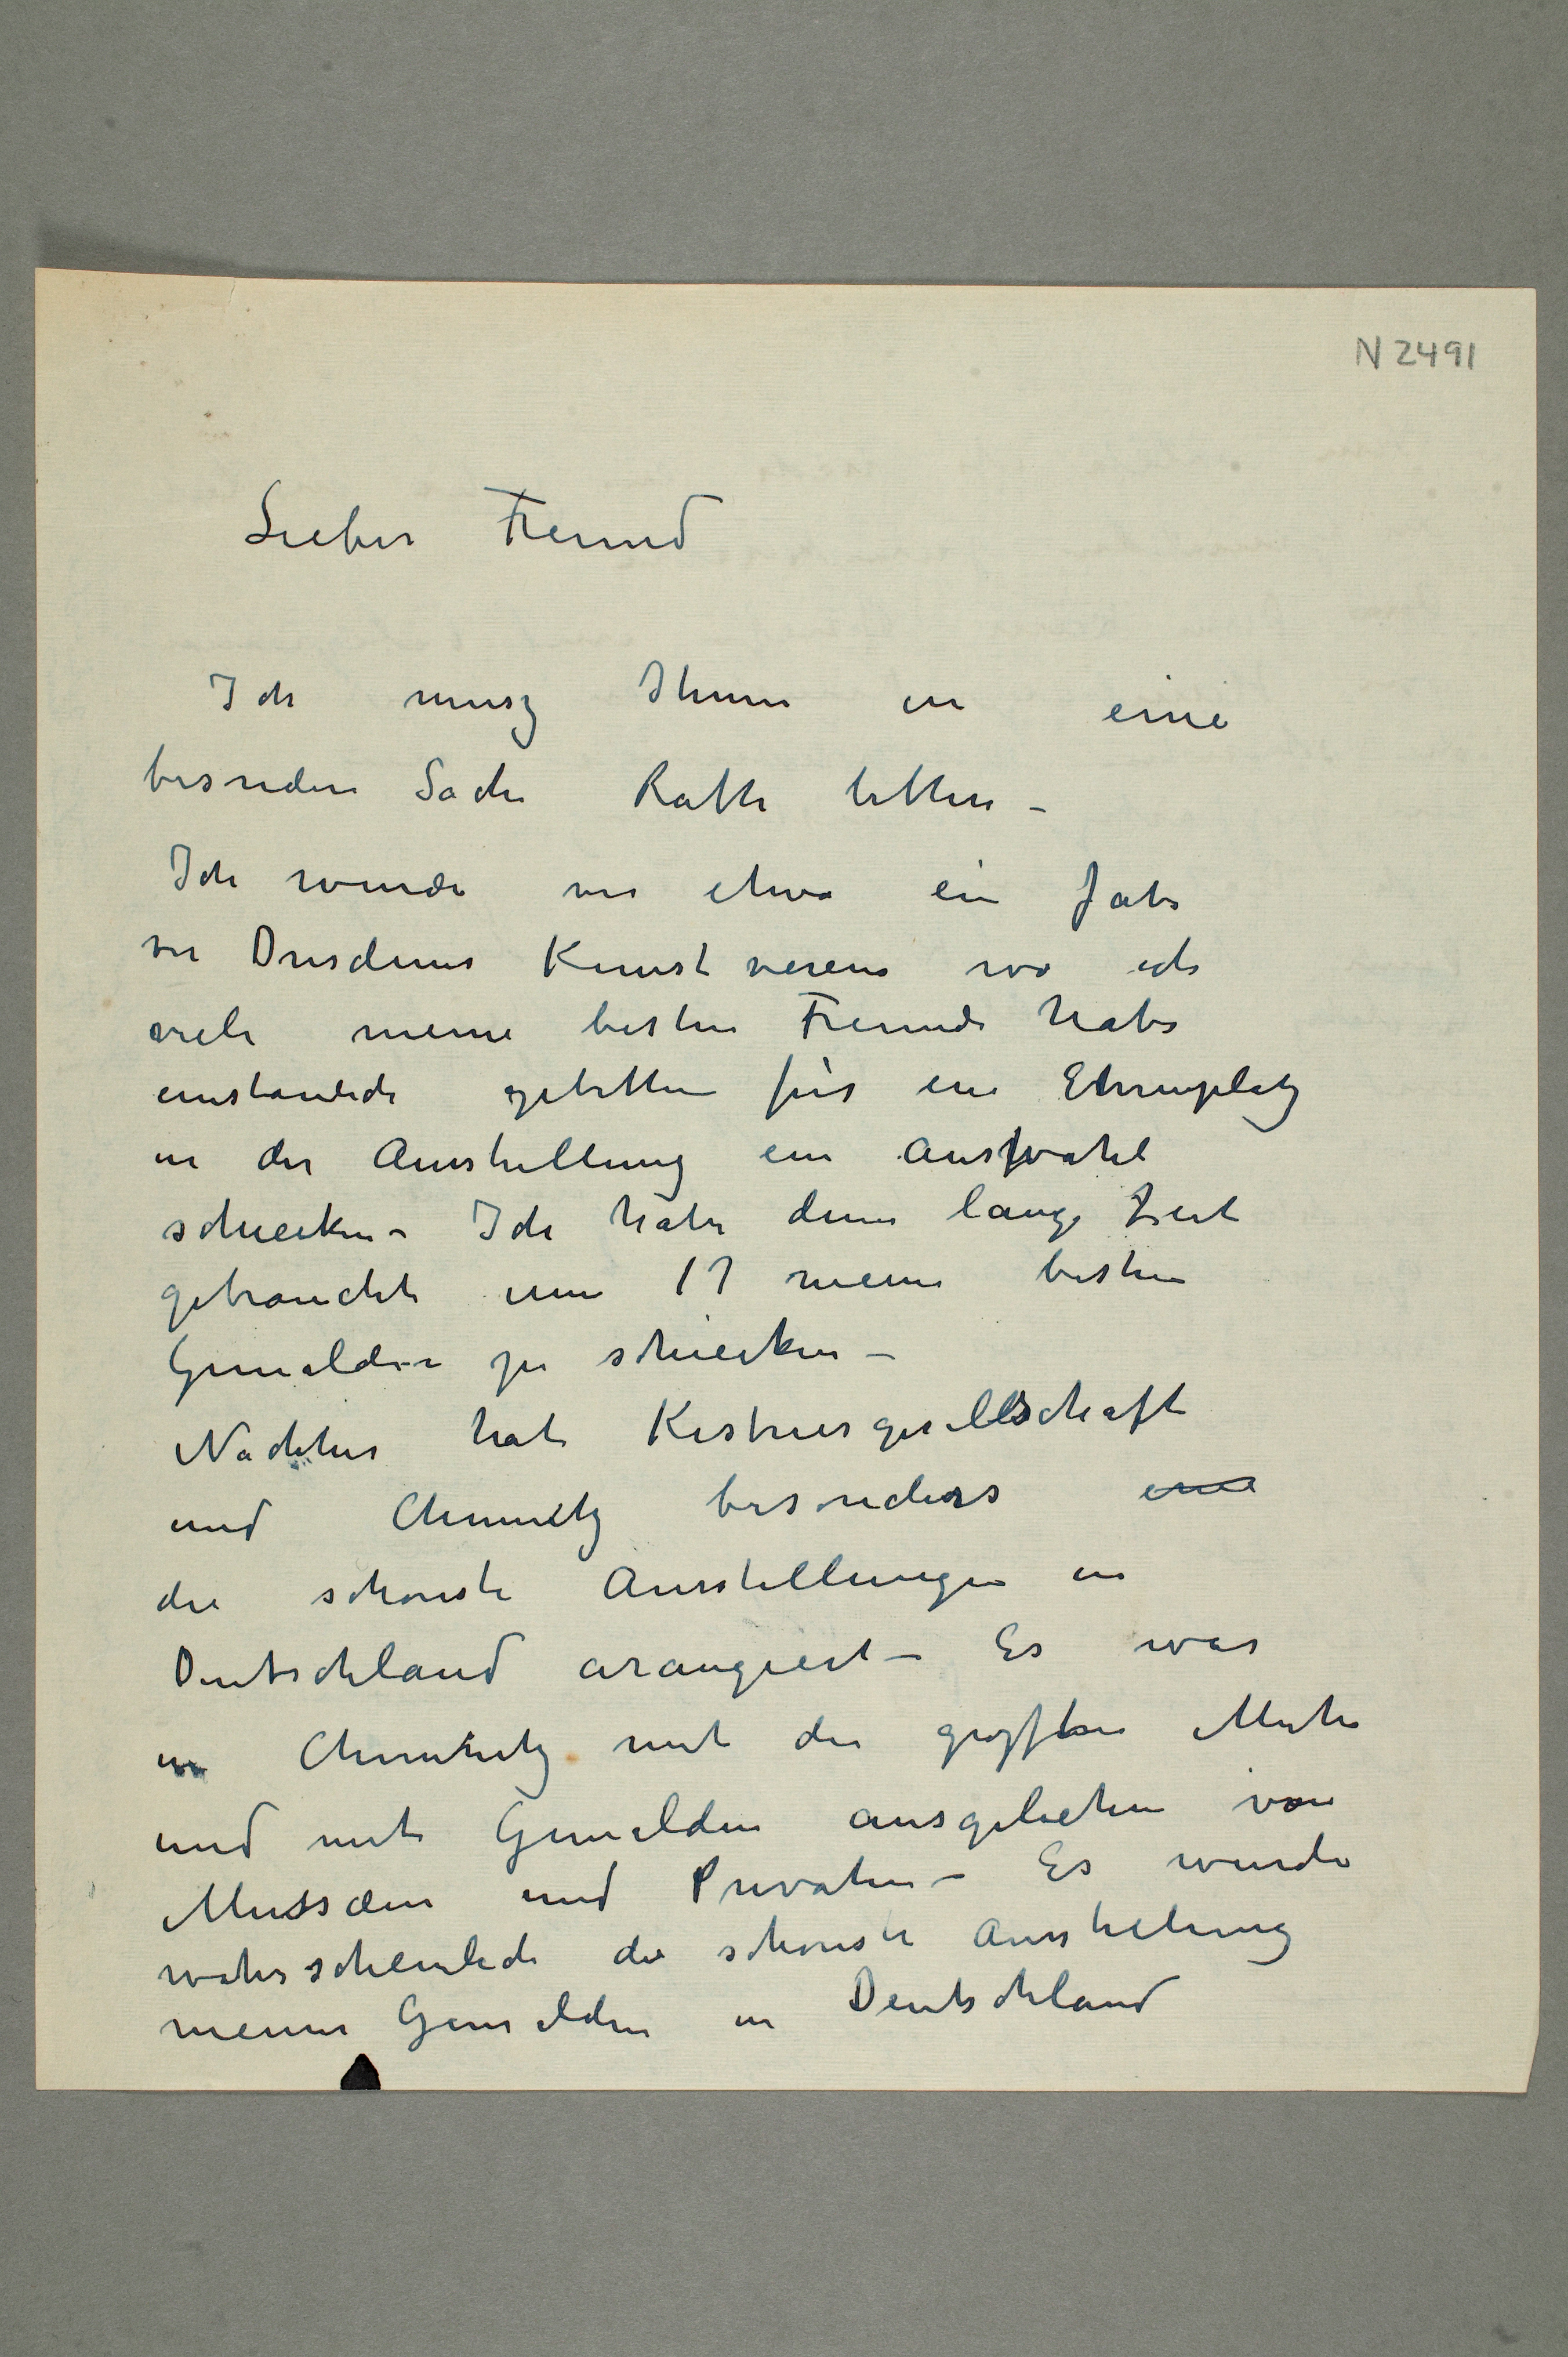 N 2491
Lieber Freund
Ich musz Ihnen in eine
besondere Sache Rathe bitten –
Ich wurde vor etwa ein Jahr
von Dresdener Kunstverein wo ich
viele meine besten Freunde habe
einständich gebitten für ein Ehrenplatz
in der Ausstellung ein Auswahl
schiecken – Ich habe denn lange Zeit
gebraucht um 17 meine besten
Gemälden zu schiecken –
Nachher hat Kestnergesellschaft
und Chemnitz besonders eine
die schönste Ausstellungen in
Deutschland arangiert – Es war
in Chemnitz mit die größten Mühe
und mit Gemälden ausgeliehen von
Mussæen und Privaten – Es wurde
wahrscheinlich die schönste Ausstellung
meiner Gemälden in Deutschland